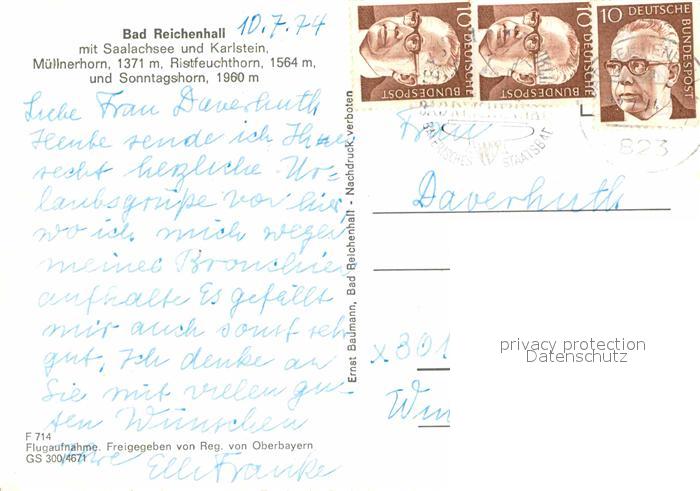 Bad Reichenhall 10.7.74
mit Saalachsee und Karlstein,
Müllnerhorn, 1371 m, Ristfeuchthorn, 1564 m,
und Sonntagshorn, 1960 m
Liebe Frau Daverhuth
Heute sende ich Ihnen
recht herzliche Ur-
laubsgrüße von hier,
wo ich mich wegen
meines Bronchien
aufhalte Es gefällt
mir auch sonst sehr
gut, Ich denke an
Sie mit vielen gu-
ten Wünschen
Ihre Elli Franke
F 714
Flugaufnahme. Freigegeben von Reg. von Oberbayern
GS 300/4671
Ernst Baumann, Bad Reichenhall - Nachdruck verboten
10 DEUTSCHE BUNDESPOST
10 DEUTSCHE BUNDESPOST
10 DEUTSCHE BUNDESPOST
BAYERISCHES STAATSBAD
823
Frau
Daverhuth
x 301
privacy protection
Datenschutz